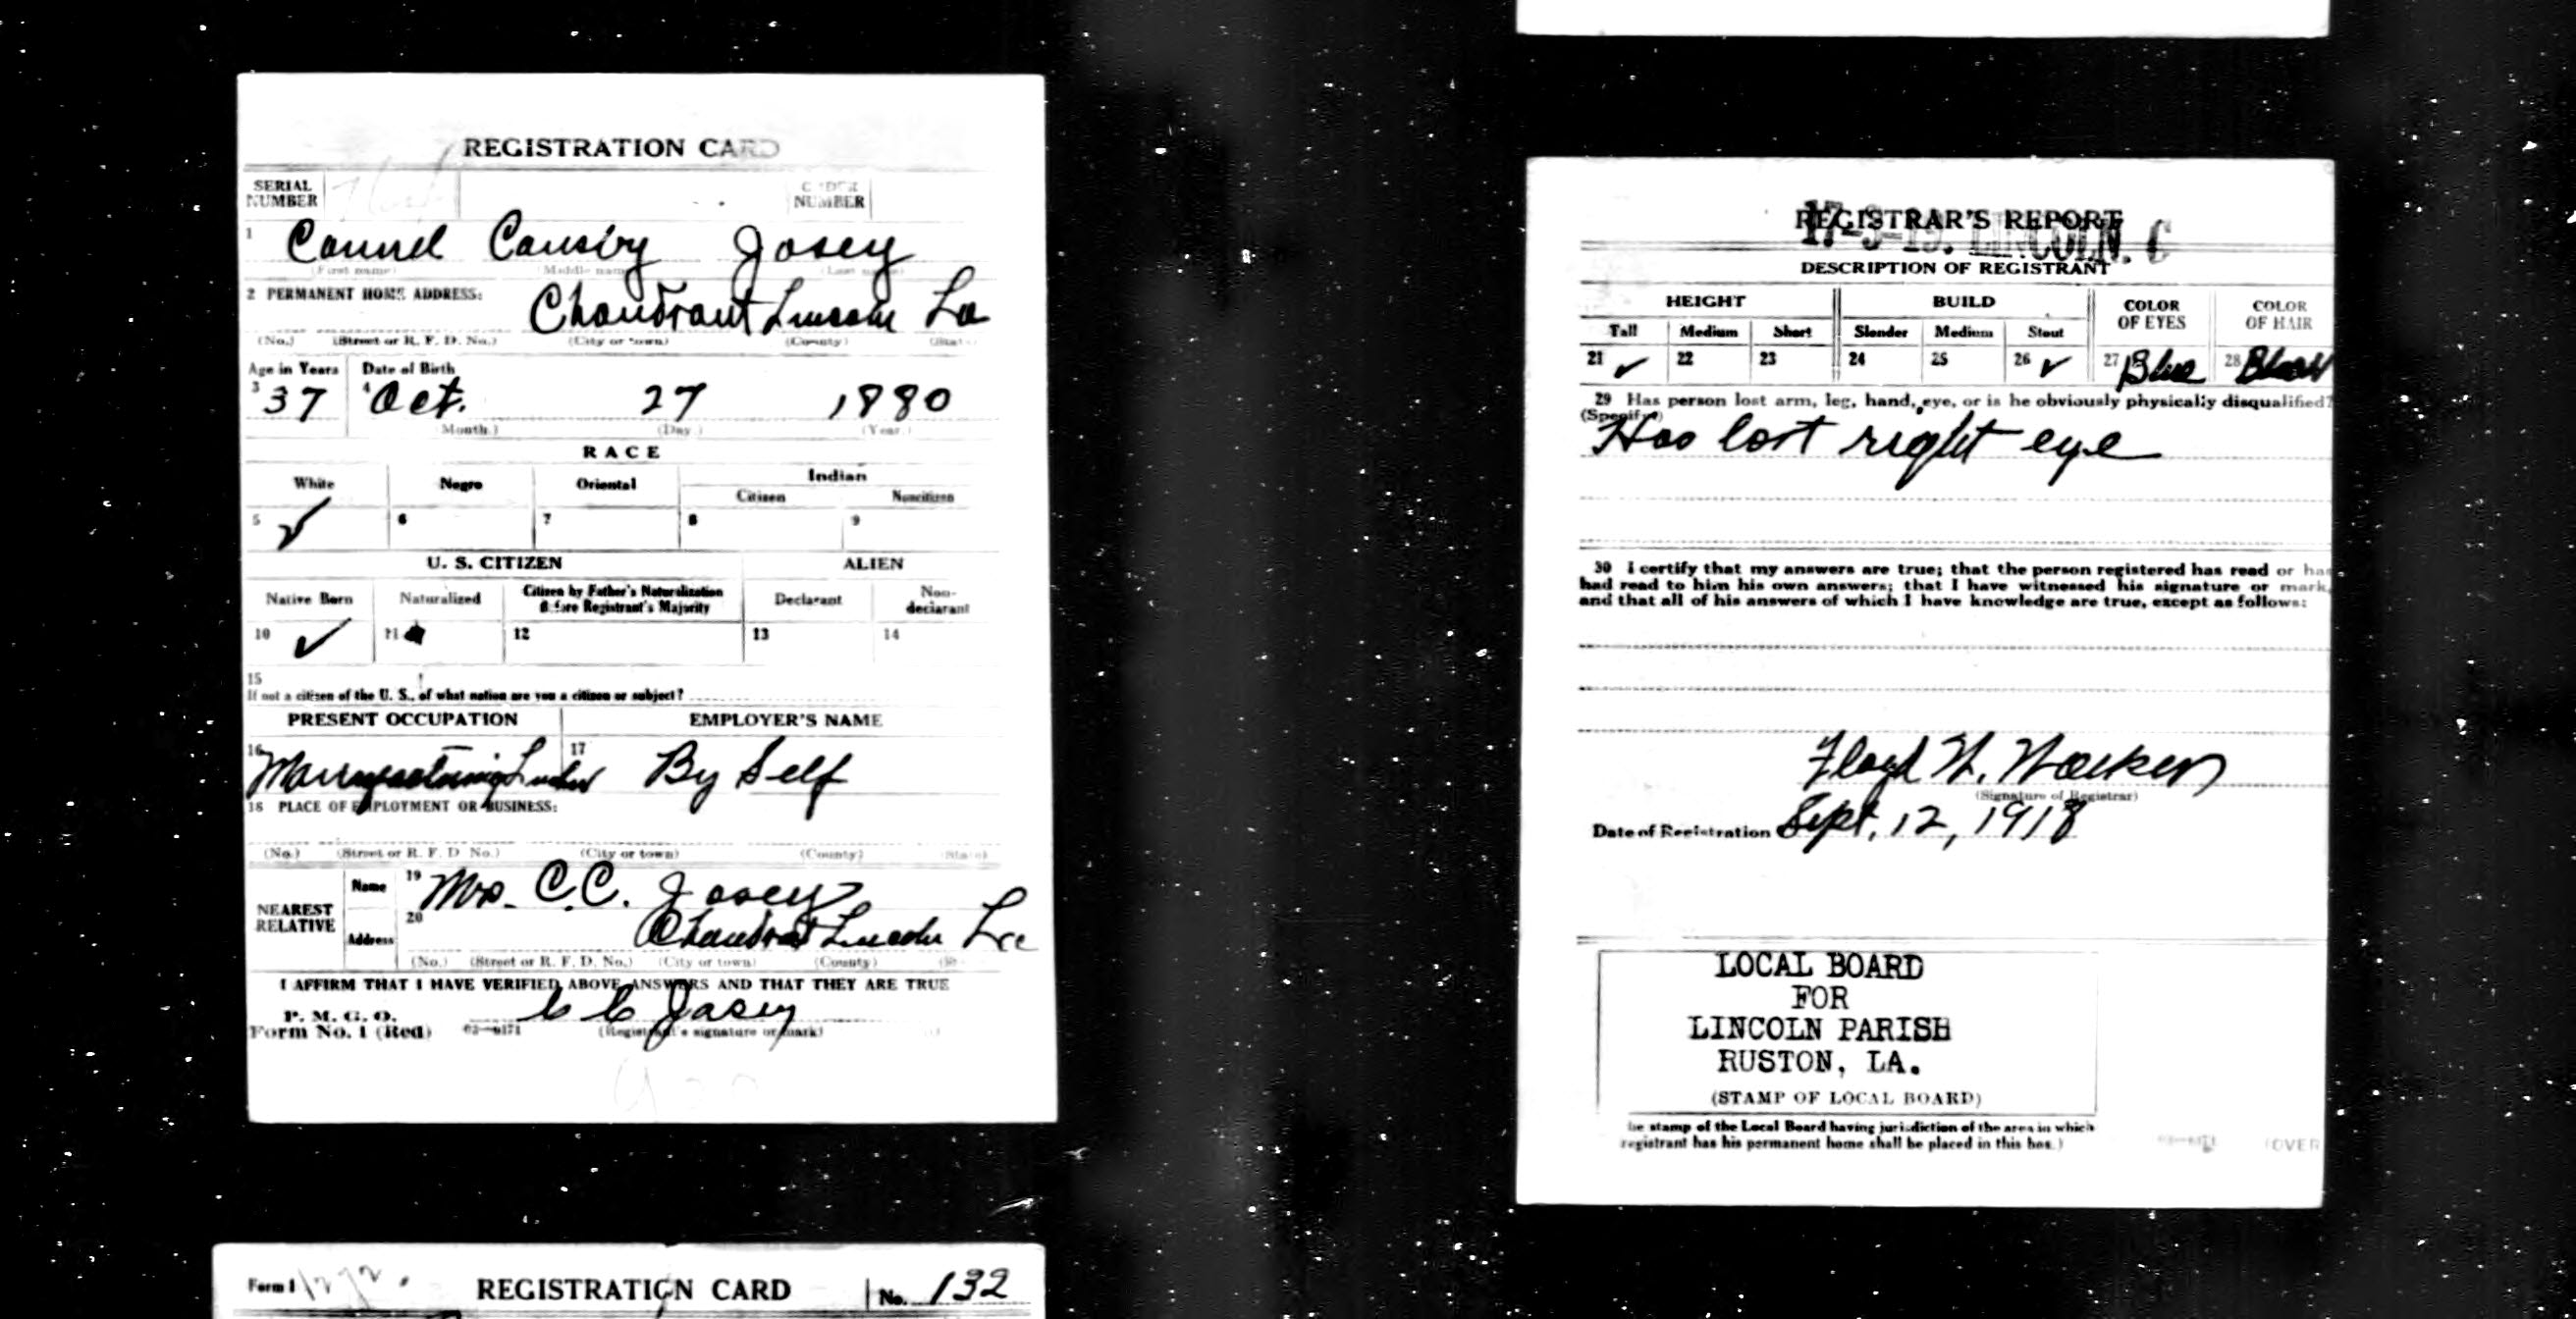 REGISTRATION CARD
SERIAL NUMBER
ORDER NUMBER
1 Connel Causby Josey
(First name) (Middle name) (Last name)
2 PERMANENT HOME ADDRESS:
Choudrant Lincoln La
(No.) (Street or R. F. D. No.) (City or town) (County) (State)
Age in Years Date of Birth
3 37 4 Oct. 27 1880
(Month.) (Day.) (Year.)
RACE
White Negro Oriental Indian
Citizen Noncitizen
5 ✓ 6 7 8 9
U. S. CITIZEN ALIEN
Native Born Naturalized Citizen by Father's Naturalization Before Registrant's Majority Declarant Non-declarant
10 ✓ 11 12 13 14
15
If not a citizen of the U. S., of what nation are you a citizen or subject?
PRESENT OCCUPATION EMPLOYER'S NAME
16 Manufacturing Lumber 17 By Self
18 PLACE OF EMPLOYMENT OR BUSINESS:
(No.) (Street or R. F. D No.) (City or town) (County) (State)
NEAREST RELATIVE
Name 19 Mrs. C.C. Josey
Address 20 Choudrant Lincoln La
(No.) (Street or R. F. D. No.) (City or town) (County)
I AFFIRM THAT I HAVE VERIFIED ABOVE ANSWERS AND THAT THEY ARE TRUE
P. M. G. O.
Form No. 1 (Red) 03—6171
C C Josey
(Registrant's signature or mark)
Form 1 REGISTRATION CARD No. 132
REGISTRAR'S REPORT
17-3-19. LINCOLN. C
DESCRIPTION OF REGISTRANT
HEIGHT BUILD COLOR OF EYES COLOR OF HAIR
Tall Medium Short Slender Medium Stout
21 ✓ 22 23 24 25 26 ✓ 27 Blue 28 Black
29 Has person lost arm, leg, hand, eye, or is he obviously physically disqualified?
(Specify.)
Has lost right eye
30 I certify that my answers are true; that the person registered has read or has
had read to him his own answers; that I have witnessed his signature or mark,
and that all of his answers of which I have knowledge are true, except as follows:
(Signature of Registrar)
Date of Registration Sept. 12, 1918
LOCAL BOARD
FOR
LINCOLN PARISH
RUSTON, LA.
(STAMP OF LOCAL BOARD)
he stamp of the Local Board having jurisdiction of the area in which
registrant has his permanent home shall be placed in this box.)
(OVER